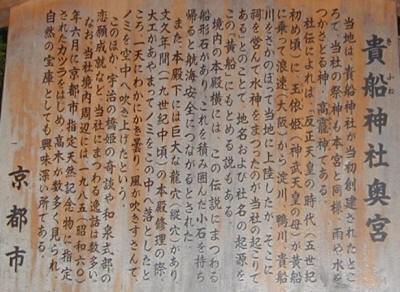 貴船神社奥宮
き
ふね
当地は、貴船神社が当初創建されたとこ
ろで、当社の祭神も本宮と同様、雨や水を
つかさどる神、高龗神である。
社伝によれば、「反正天皇の時代(五世紀
初め頃)に、玉依姫(神武天皇の母)が黄船
に乗って浪速(大阪)から淀川、鴨川、貴船
川をさかのぼって当地に上陸したが、そこに
祠を営んで水神をまつったのが当社の起こりで
ある」とのことで、地名および社名の起源を
この「黄船」にもとめる説もある。
境内の本殿横には、この伝説にまつわる
船形石があり、これを積み囲んだ小石を持ち
帰ると航海安全につながるとされた。
また、本殿下には巨大な龍穴(縦穴)があり
文久年間(一九世紀中頃)の本殿修理の際、
大工があやまってノミをこの中へ落としたと
ころ一天にわかにかき曇り、風が吹きすさんで
ノミを空中へ吹き上げたという。
このほか、宇治の橋姫の奇談や和泉式部の
恋願成就など、当社にまつわる逸話は数多い。
なお当社境内周辺には、一九八五(昭和六〇)
年六月に京都市指定天然記念物に指定
されたカツラをはじめ、高木が数多く見られ
自然の宝庫としても興味深い所である。
京都市